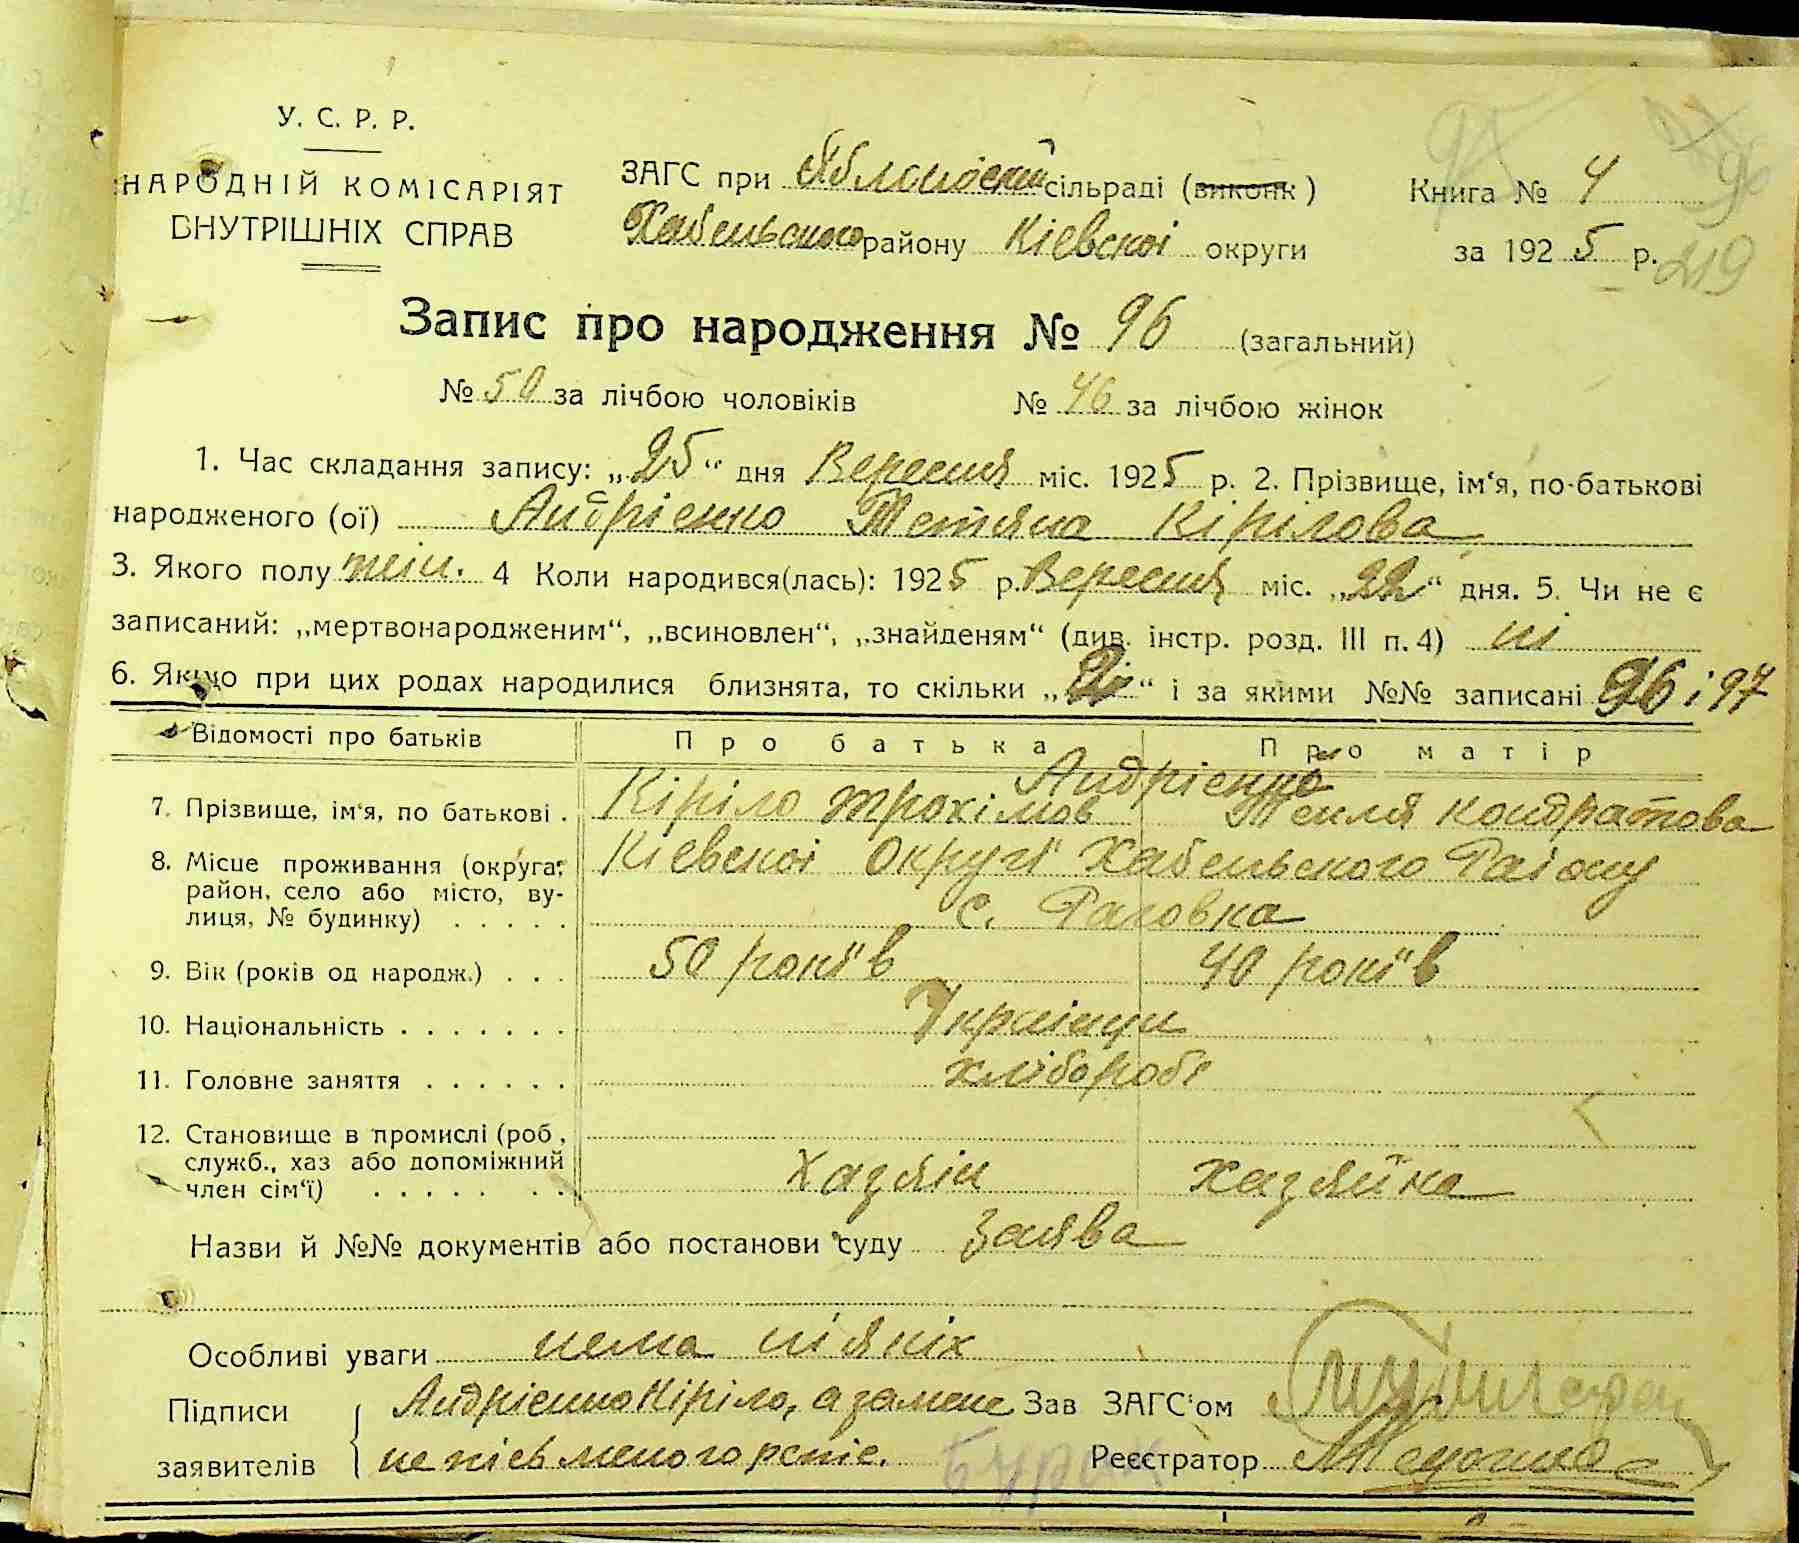 У. С. Р. Р.
НАРОДНІЙ КОМІСАРІЯТ
ВНУТРІШНІХ СПРАВ
ЗАГС при сільраді (виконк)
Хабенського району Кіевскоі округи
Книга № 4
за 1925 р.
219
Запис про народження № 96 (загальний)
№ 50 за лічбою чоловіків № 46 за лічбою жінок
1. Час складання запису: „25“ дня Вересня міс. 1925 р. 2. Прізвище, ім‘я, по-батькові
народженого (ої) Андріенко Тетяна Кірілова
3. Якого полу жін. 4 Коли народився(лась): 1925 р. Вересня міс. „22“ дня. 5. Чи не є
записаний: „мертвонародженим“, „всиновлен“, „знайденям“ (див. інстр. розд. III п. 4) ні
6. Якщо при цих родах народилися близнята, то скільки „2“ і за якими №№ записані 96 і 97
Відомості про батьків Про батька Про матір
Андріенко
7. Прізвище, ім‘я, по батькові . Кіріло Трохімов Текля Кондратова
8. Місце проживання (округа, район, село або місто, вулиця, № будинку) Кіевскоі Округі Хабенського Раіону
с. Раговка
9. Вік (років од народж.) 50 років 40 років
10. Національність Украінци
11. Головне заняття хліборобе
12. Становище в промислі (роб., служб., хаз або допоміжний член сім‘ї) Хазяін хазяйка
Назви й №№ документів або постанови суду Заява
Особливі уваги нема ніякіх
Підписи заявителів Андріенко Кіріло, а замене
неписьменого
Зав ЗАГС‘ом
Реєстратор